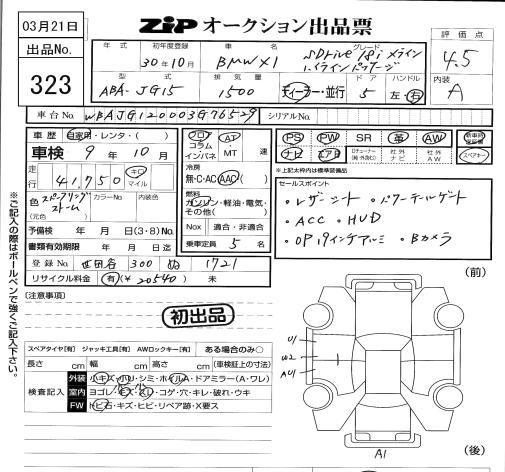 03月21日
出品No.
323
ZiP オークション出品票
評価点
4.5
内装
A
年式
初年度登録
30年10月
車名
BMW X1
グレード
SDrive 18i Xライン
ハイラインパッケージ
型式
ABA-JG15
排気量
1500
ディーラー・並行
ドア
5
ハンドル
左・右
車台No.
WBAJG120003G76529
シリアルNo.
車歴 自家用・レンタ・( )
車検 9年10月
走行
41,750
キロ
マイル
色
(元色)
スパークリング
ストーム
カラーNo.
内装色
予備検 年 月 日(3・8)No.
書類有効期限 年 月 日迄
登録No. 世田谷 300 ぬ 1721
リサイクル料金 有(¥20540) 未
フロア
コラム
インパネ
AT
・
MT
速
冷房
無・C・AC・AAC
燃料
ガソリン・軽油・電気・
その他( )
Nox 適合・非適合
乗車定員 5 名
PS
PW
SR
革
AW
ナビ
エアB
社外
ナビ
社外
AW
スペアキー
※上記太枠内は標準装備品
セールスポイント
・レザーシート ・パワーテールゲート
・ACC ・HUD
・OP19インチアルミ ・Bカメラ
※ご記入の際はボールペンで強くご記入下さい。
(注意事項)
初出品
スペアタイヤ[有] ジャッキ工具[有] AWロックキー[有] ある場合のみ○
長さ cm 幅 cm 高さ cm (車検証上の寸法)
検査記入
外装 小キズ・小凹・シミ・ホイルA・ドアミラー(A・ワレ)
室内 ヨゴレ・キズ・スレ・コゲ・穴・キレ・破れ・ウキ
FW トビ石・キズ・ヒビ・リペア跡・X要ス
(前)
U1
W2
AU1
A1
(後)